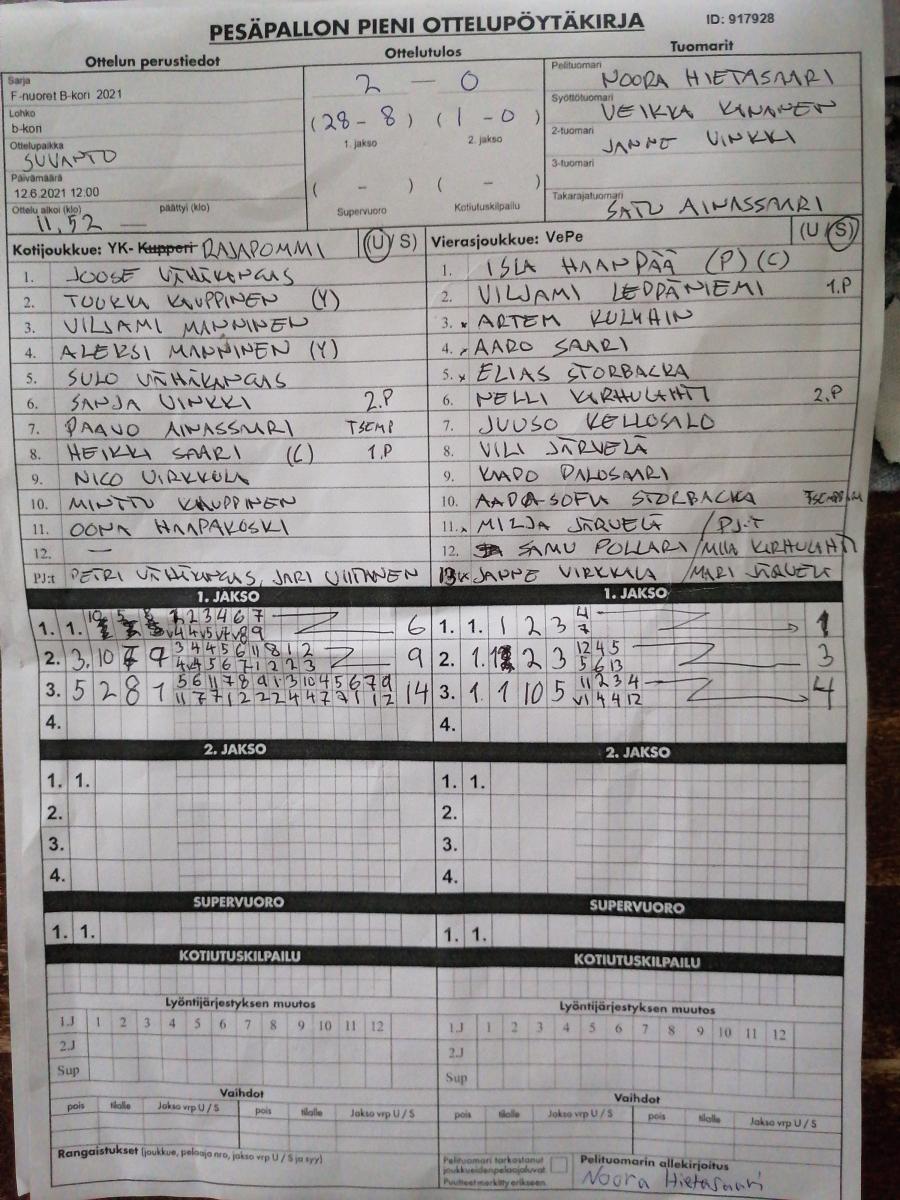 PESÄPALLON PIENI OTTELUPÖYTÄKIRJA
ID: 917928
Ottelun perustiedot
Ottelutulos
Tuomarit
Sarja
F-nuoret B-kori 2021
Lohko
b-kori
Ottelupaikka
SUVANTO
Päivämäärä
12.6.2021 12:00
Ottelu alkoi (klo) päättyi (klo)
11,52 —
2 — 0
(28 - 8) (1 - 0)
1. jakso 2. jakso
( - ) ( - )
Supervuoro Kotiutuskilpailu
Pelituomari
NOORA HIETASAARI
Syöttötuomari
VEIKKA KANANEN
2-tuomari
JANNE VINKKI
3-tuomari
Takarajatuomari
SATU AINASSAARI
Kotijoukkue: YK- Kupperi RAJAPOMMI (U/ S)
1. JOOSE VÄHÄKANGAS
2. TOUKKA KAUPPINEN (Y)
3. VILJAMI MANNINEN
4. ALEKSI MANNINEN (Y)
5. SULO VÄHÄKANGAS
6. SANJA VINKKI 2.P
7. PAAVO AINASSAARI TSEMP
8. HEIKKI SAARI (C) 1.P
9. NICO VIRKKULA
10. MINTTU KAUPPINEN
11. OONA HAAPAKOSKI
12. —
PJ:t PETRI VÄHÄKANGAS, JARI VIITANEN
Vierasjoukkue: VePe (U / S)
1. ISLA HAANPÄÄ (P) (C)
2. VILJAMI LEPPÄNIEMI 1.P
3. x ARTEM KULMAIN
4. x AARO SAARI
5. x ELIAS STORBACKA
6. NELLI KIRHULAHTI 2.P
7. JUUSO KELLOSALO
8. VILI JÄRVELÄ
9. KAAPO PALOSAARI
10. AADA-SOFIA STORBACKA
11. x MILJA JÄRVELÄ / PJ:T
12. SAMU POLLARI / MIIA KIRHULAHTI
13. x JANNE VIRKKALA / MARI JÄRVELÄ
1. JAKSO
1. 1. 6
2. 3. 10 9
3. 5 2 8 1 14
4.
1. JAKSO
1. 1. 1 2 3 4 7 1
2. 1. 2 3 12 4 5 5 6 13 3
3. 1. 1 10 5 11 2 3 4 v1 4 4 12 4
4.
2. JAKSO
1. 1.
2.
3.
4.
2. JAKSO
1. 1.
2.
3.
4.
SUPERVUORO
1. 1.
SUPERVUORO
1. 1.
KOTIUTUSKILPAILU
KOTIUTUSKILPAILU
Lyöntijärjestyksen muutos
1.J 1 2 3 4 5 6 7 8 9 10 11 12
2.J
Sup
Lyöntijärjestyksen muutos
1.J 1 2 3 4 5 6 7 8 9 10 11 12
2.J
Sup
Vaihdot
pois tilalle Jakso vrp U / S pois tilalle Jakso vrp U / S
Vaihdot
pois tilalle Jakso vrp U / S pois tilalle Jakso vrp U / S
Rangaistukset (joukkue, pelaaja nro, jakso vrp U / S ja syy)
Pelituomari tarkastanut
joukkueidenpelaajaluvat.
Puutteet merkitty erikseen.
Pelituomarin allekirjoitus
Noora Hietasaari